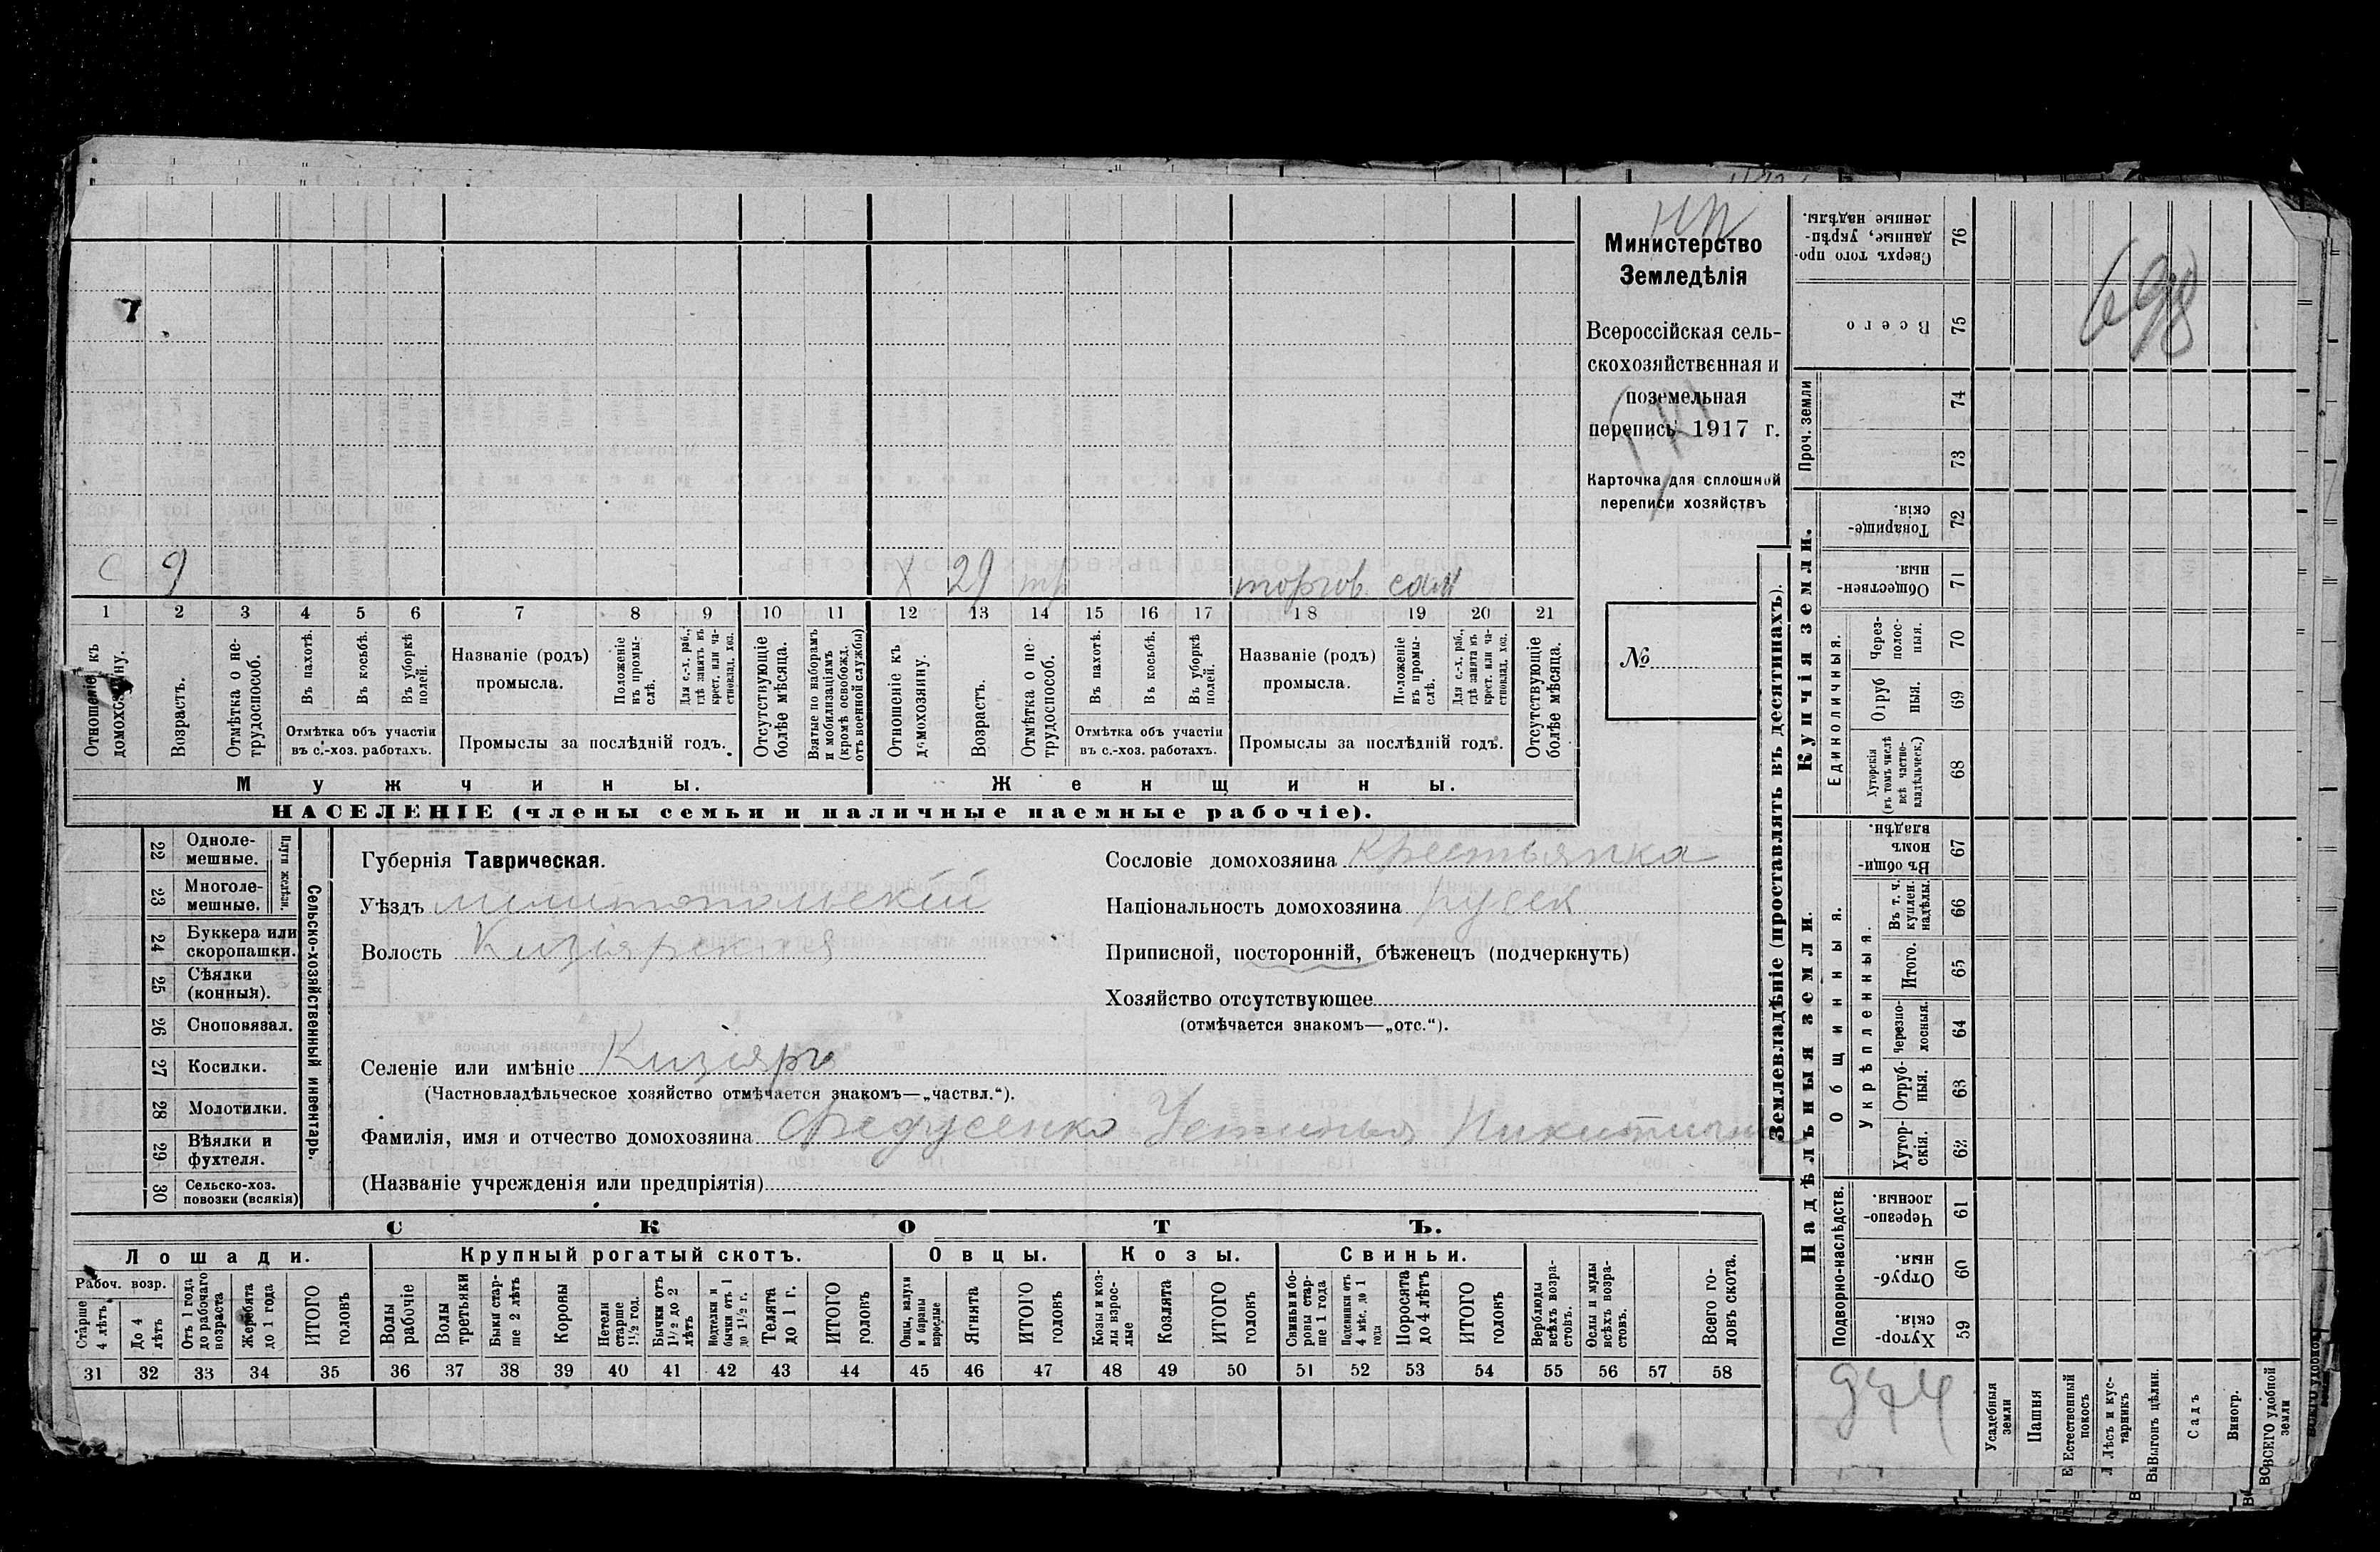 Министерство
Земледѣлія
Всероссійская сель-
скохозяйственная и
поземельная
перепись 1917 г.
Карточка для сплошной
переписи хозяйствъ
№
698
С 9 Х 29 торгов. сам
1 2 3 4 5 6 7 8 9 10 11 12 13 14 15 16 17 18 19 20 21
Отношеніе къ домохозяину.
Возрастъ.
Отмѣтка о не-
трудоспособ.
Въ пахотѣ.
Въ косьбѣ.
Въ уборкѣ полей.
Отмѣтка объ участіи
въ с.-хоз. работахъ.
Названіе (родъ)
промысла.
Положеніе въ промы-
слѣ.
Для с.-х. раб., гдѣ занятъ въ крест. или ча-
стновлад. хоз.
Промыслы за послѣдній годъ.
Отсутствующіе болѣе мѣсяца.
Взятые по наборамъ и мобилизаціямъ (кромѣ освобожд. отъ военной службы)
Отношеніе къ домохозяину.
Возрастъ.
Отмѣтка о не-
трудоспособ.
Въ пахотѣ.
Въ косьбѣ.
Въ уборкѣ полей.
Отмѣтка объ участіи
въ с.-хоз. работахъ.
Названіе (родъ)
промысла.
Положеніе въ промы-
слѣ.
Для с.-х. раб., гдѣ занята въ крест. или ча-
стновлад. хоз.
Промыслы за послѣдній годъ.
Отсутствующіе болѣе мѣсяца.
Мужчины.
Женщины.
НАСЕЛЕНІЕ (члены семьи и наличные наемные рабочіе).
Сельско-хозяйственный инвентарь.
Плуги желѣзн.
22 Одноле-
мешные.
23 Многоле-
мешные.
24 Буккера или
скоропашки.
25 Сѣялки
(конныя).
26 Сноповязал.
27 Косилки.
28 Молотилки.
29 Вѣялки и
фухтеля.
30 Сельско-хоз.
повозки (всякія)
Губернія Таврическая.
Уѣздъ Мелитопольскій
Волость Кизіярская
Селеніе или имѣніе Кизіяръ
(Частновладѣльческое хозяйство отмѣчается знакомъ—„частвл.“).
Фамилія, имя и отчество домохозяина Федусенко Устинья Никитична
(Названіе учрежденія или предпріятія)
Сословіе домохозяина Крестьянка
Національность домохозяина русск
Приписной, посторонній, бѣженецъ (подчеркнуть)
Хозяйство отсутствующее
(отмѣчается знакомъ—„отс.“).
СКОТЪ.
Лошади. Крупный рогатый скотъ. Овцы. Козы. Свиньи.
Рабоч. возр.
Старше 4 лѣтъ
До 4 лѣтъ
Отъ 1 года до рабочаго возраста
Жеребята до 1 года
ИТОГО головъ
Волы рабочіе
Волы третьяки
Быки стар-
ше 2 лѣтъ
Коровы
Нетели старше 1½ год.
Бычки отъ 1½ до 2 лѣтъ
Подтелки и бычки отъ 1 до 1½ г.
Телята до 1 г.
ИТОГО головъ
Овцы, валухи и бараны взрослые
Ягнята
ИТОГО головъ
Козы и коз-
лы взрос-
лые
Козлята
ИТОГО головъ
Свиньи и бо-
ровы стар-
ше 1 года
Подсвинки отъ 4 мѣс. до 1 года
Поросята до 4 лѣтъ
ИТОГО головъ
Верблюды всѣхъ возра-
стовъ.
Ослы и мулы всѣхъ возра-
стовъ.
Всего го-
ловъ скота.
31 32 33 34 35 36 37 38 39 40 41 42 43 44 45 46 47 48 49 50 51 52 53 54 55 56 57 58
Землевладѣніе (проставлять въ десятинахъ).
Надѣльныя земли.
Купчія земли.
Проч. земли
Подворно-наслѣдств.
Общинныя.
Укрѣпленныя.
Единоличныя.
Сверхъ того про-
данные, укрѣп-
ленные надѣлы. 76
Всего 75
74
73
Товарище-
скія. 72
Обществен-
ныя. 71
Через-
полос-
ныя. 70
Отруб
ныя. 69
Хуторскія
(въ томъ числѣ
всѣ частно-
владѣльческ.) 68
Въ общи-
номъ
владѣн. 67
Въ т. ч.
куплен.
надѣлы. 66
Итого. 65
Черезпо-
лосныя. 64
Отруб-
ныя. 63
Хутор-
скія. 62
Черезпо-
лосныя. 61
Отруб-
ныя. 60
Хутор-
скія. 59
974
Усадебныя земли
Пашня
Естественный покосъ
Лѣсъ и кус-
тарникъ
Выгонъ цѣлин.
Садъ
Виногр.
ВСЕГО удобной земли